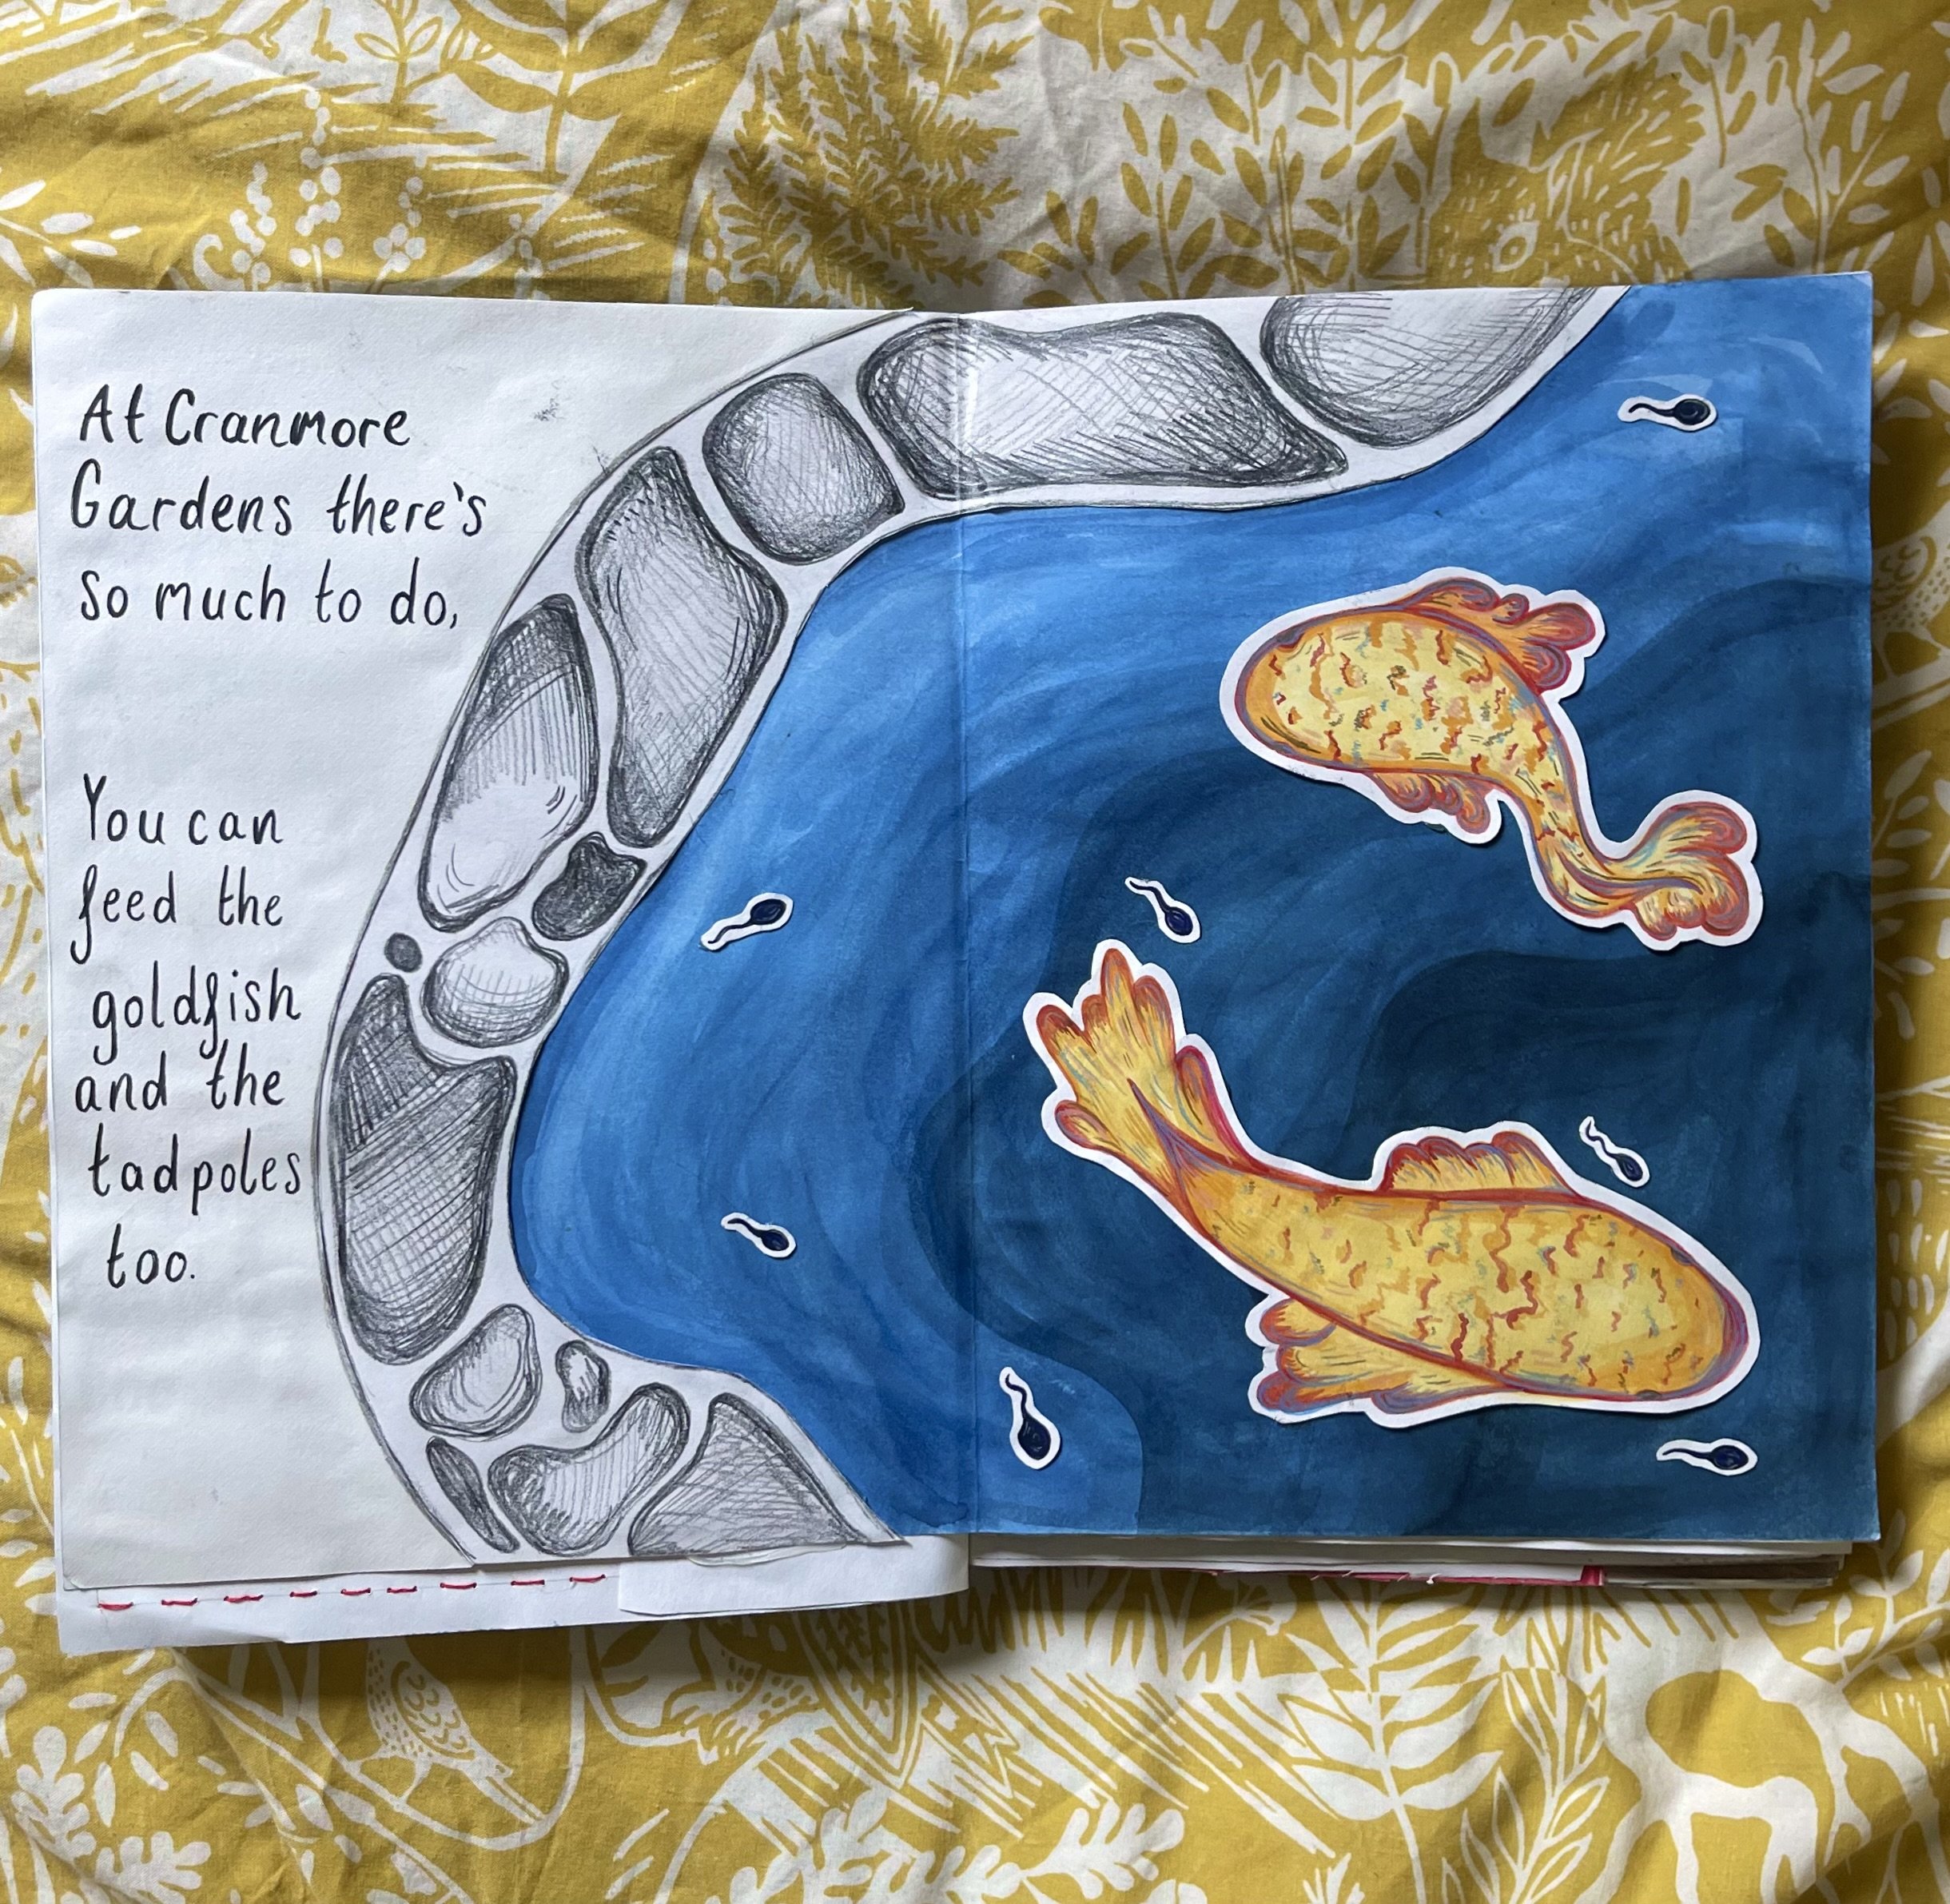 At Cranmore
Gardens there's
so much to do,
You can
feed the
goldfish
and the
tadpoles
too.